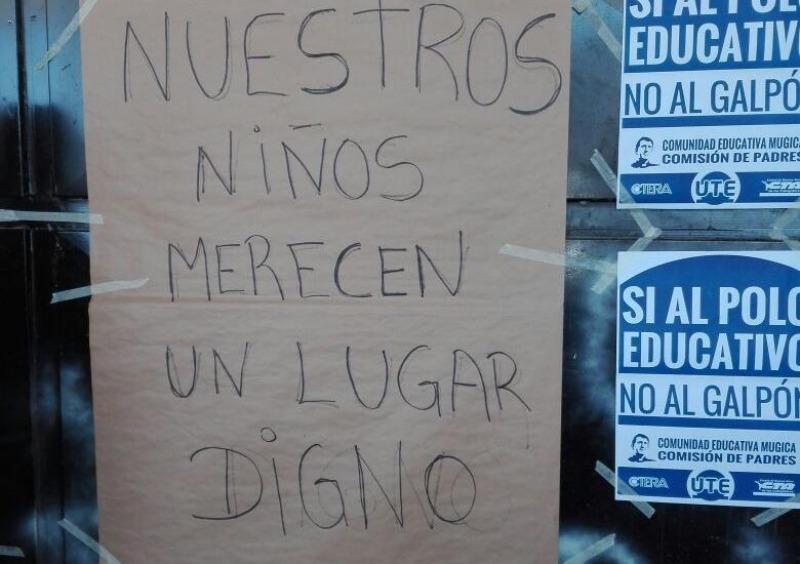 NUESTROS
NIÑOS
MERECEN
UN LUGAR
DIGNO
SI AL POLO
EDUCATIVO
NO AL GALPÓ
COMUNIDAD EDUCATIVA MUGICA
COMISIÓN DE PADRES
CTERA UTE CTA
SI AL POLO
EDUCATIVO
NO AL GALPÓN
COMUNIDAD EDUCATIVA MUGICA
COMISIÓN DE PADRES
CTERA UTE CTA